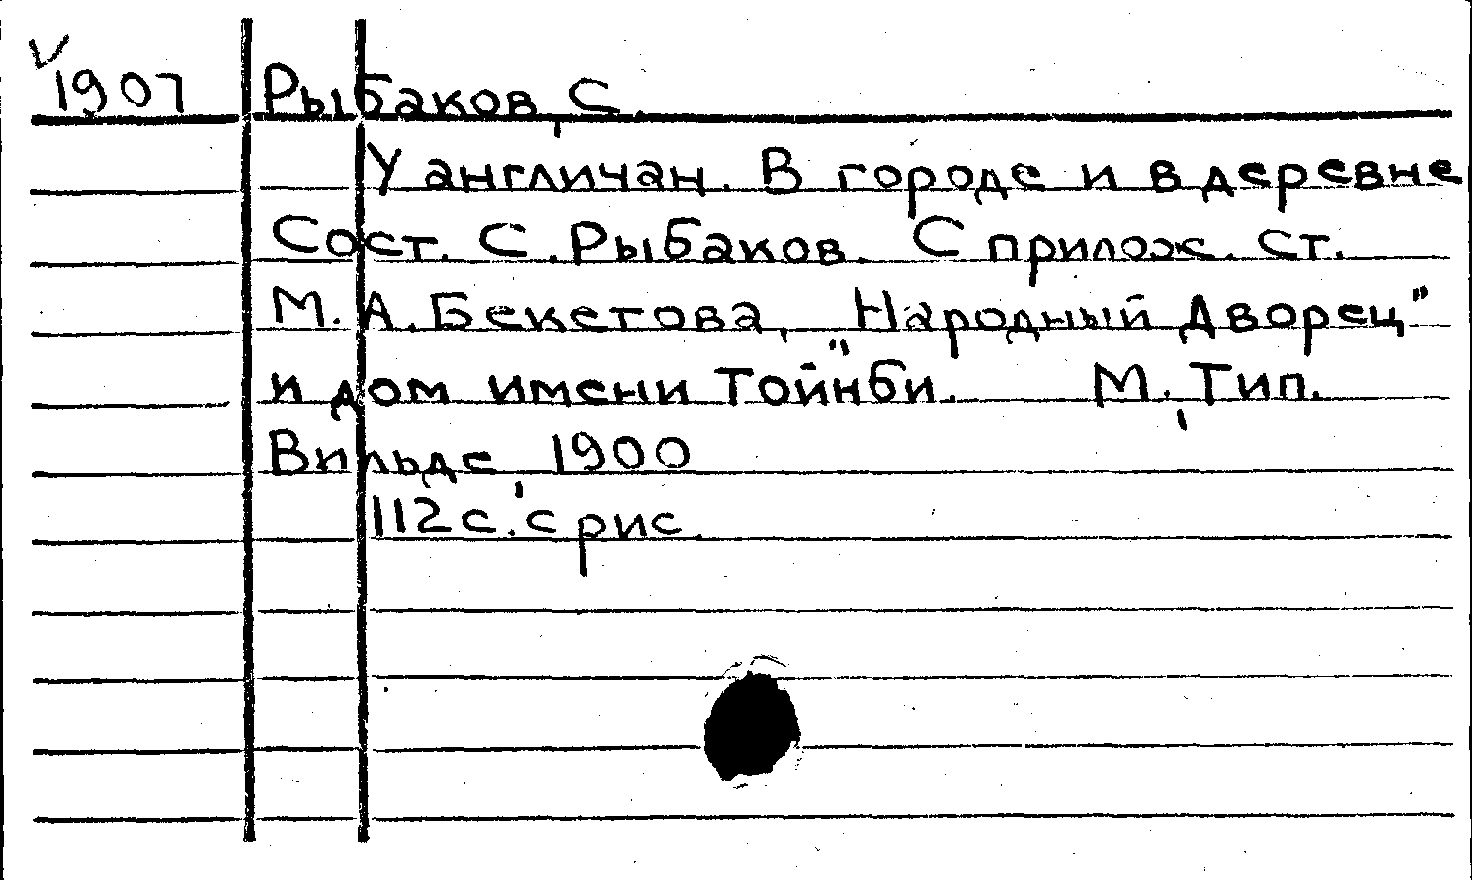 V
1907 Рыбаков, С.
У англичан. В городе и в деревне
Сост. С. Рыбаков. С прилож. ст.
М. А. Бекетова, "Народный Дворец"
и дом имени Тойнби". М., Тип.
Вильде, 1900
112 с. с рис.